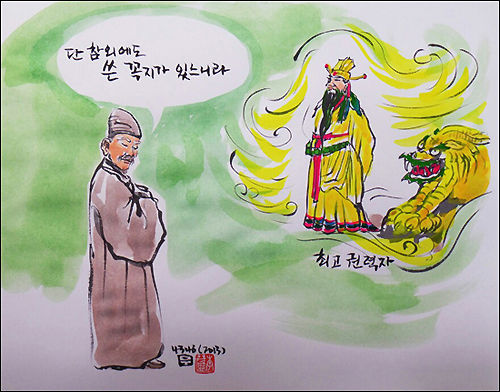 단 참외에도
쓴 꼭지가 있느니라
최고 권력자
(2013)